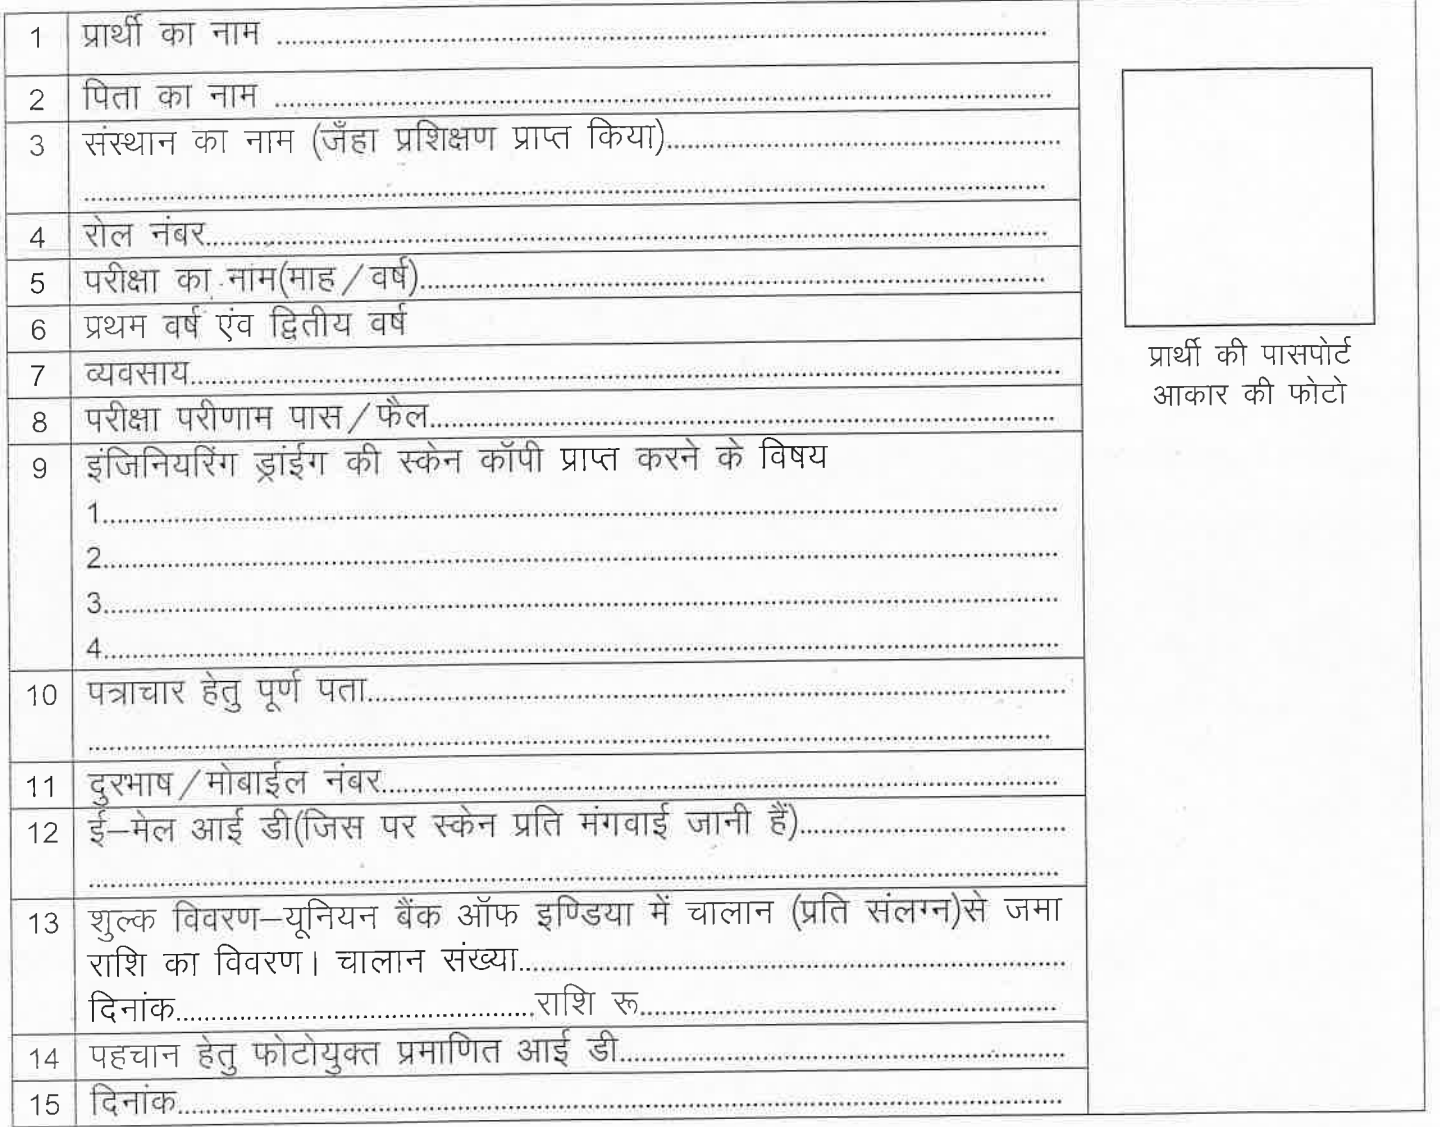 1 प्रार्थी का नाम ........................................
2 पिता का नाम ........................................
3 संस्थान का नाम (जँहा प्रशिक्षण प्राप्त किया)........................................
........................................
4 रोल नंबर........................................
5 परीक्षा का नांम(माह/वर्ष)........................................
6 प्रथम वर्ष एंव द्वितीय वर्ष
7 व्यवसाय........................................
8 परीक्षा परीणाम पास/फैल........................................
9 इंजिनियरिंग ड्रांईग की स्केन कॉपी प्राप्त करने के विषय
1........................................
2........................................
3........................................
4........................................
10 पत्राचार हेतु पूर्ण पता........................................
........................................
11 दुरभाष/मोबाईल नंबर........................................
12 ई–मेल आई डी(जिस पर स्केन प्रति मंगवाई जानी हैं)........................................
........................................
13 शुल्क विवरण–यूनियन बैंक ऑफ इण्डिया में चालान (प्रति संलग्न)से जमा
राशि का विवरण। चालान संख्या........................................
दिनांक........................................राशि रू........................................
14 पहचान हेतु फोटोयुक्त प्रमाणित आई डी........................................
15 दिनांक........................................
प्रार्थी की पासपोर्ट
आकार की फोटो